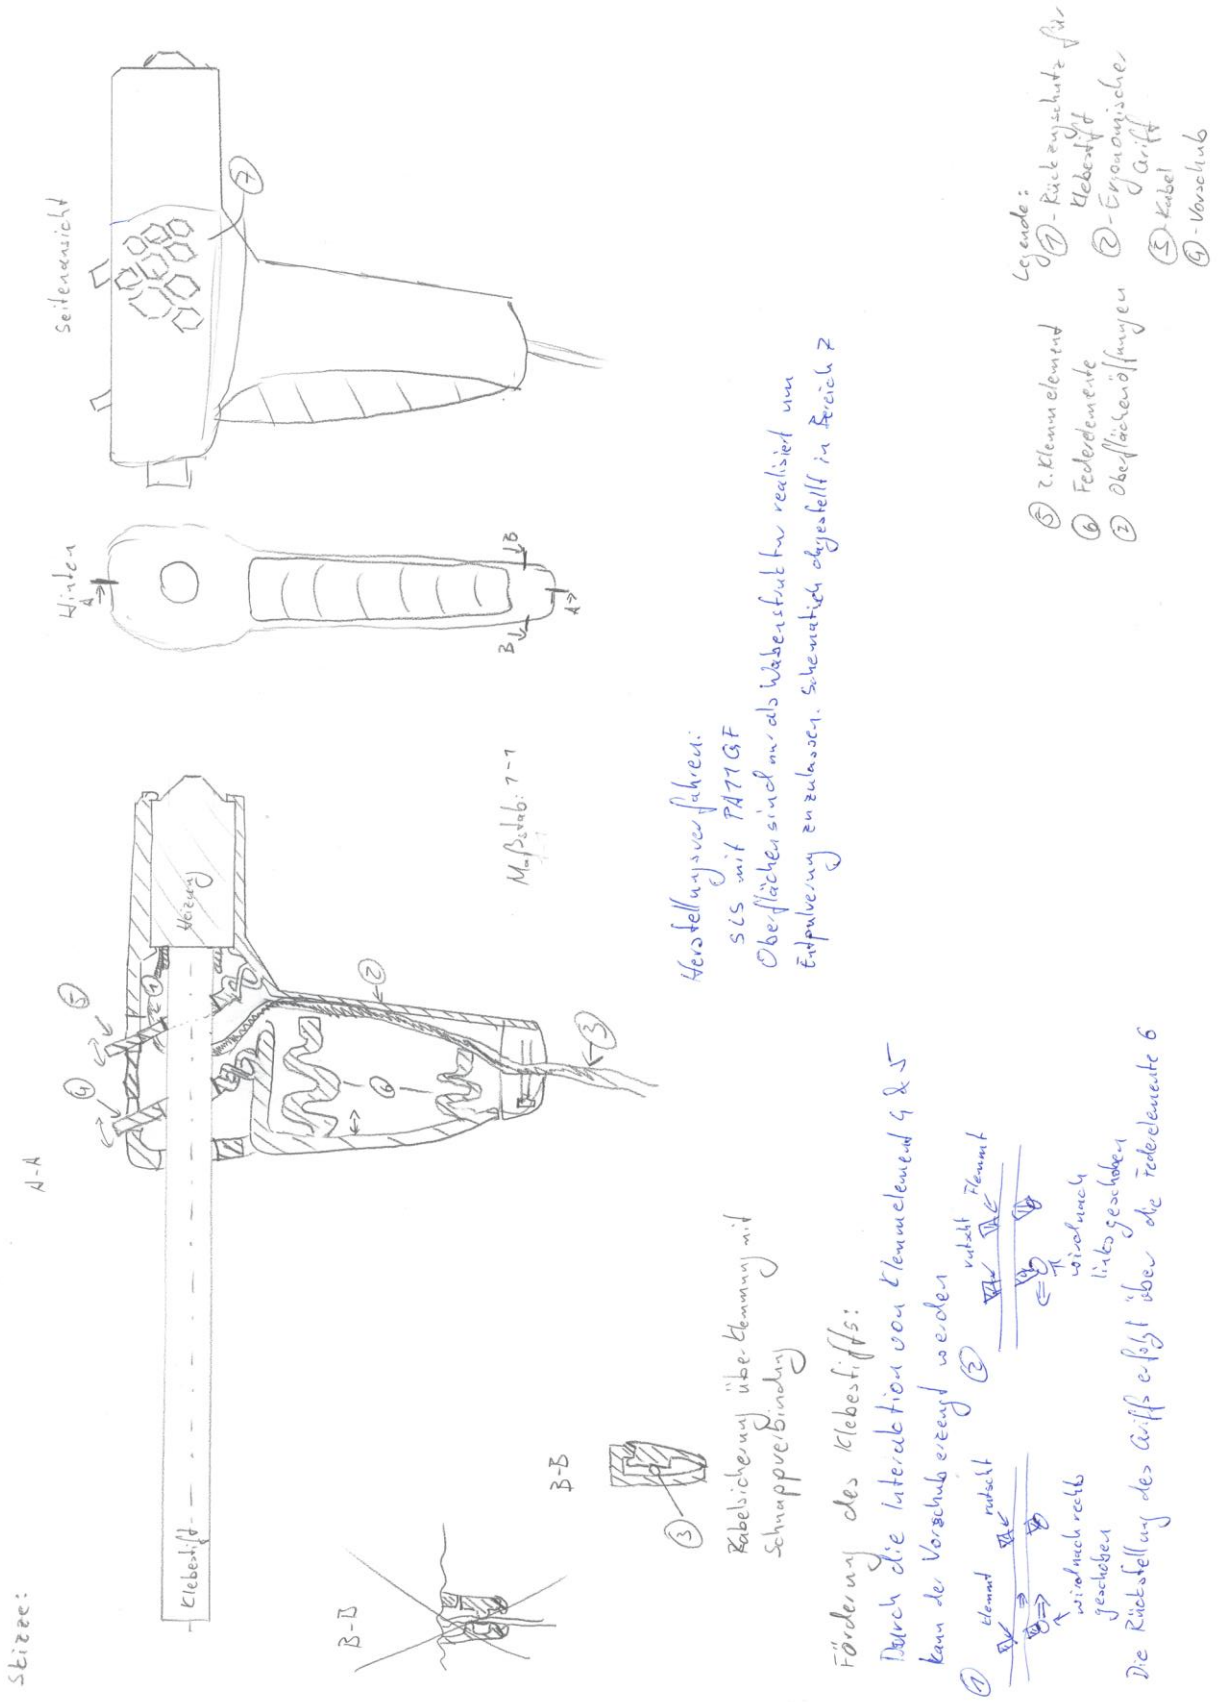 Skizze:
A-A
④
⑤
①
Klebestift
Heizung
②
⑥
③
Maßstab: 1-1
Hinten
A
B
B
A
Seitenansicht
⑦
B-B
B-B
③
Kabelsicherung über Klemmung mit
Schnappverbindung
Herstellungsverfahren:
SLS mit PA11GF
Oberflächen sind nur als Wabenstruktur realisiert um
Entpulverung zuzulassen. Schematisch dargestellt in Bereich 7
Förderung des Klebestifts:
Durch die Interaktion von Klemmelement 4 & 5
kann der Vorschub erzeugt werden
①
klemmt
rutscht
wird nach rechts
geschoben
②
rutscht
klemmt
wird nach
links geschoben
Die Rückstellung des Griffs erfolgt über die Federelemente 6
Legende:
① - Rückzugschutz für
Klebestift
② - Ergonomischer
Griff
③ - Kabel
④ - Vorschub
⑤ 2. Klemmelement
⑥ Federelemente
⑦ Oberflächenöffnungen